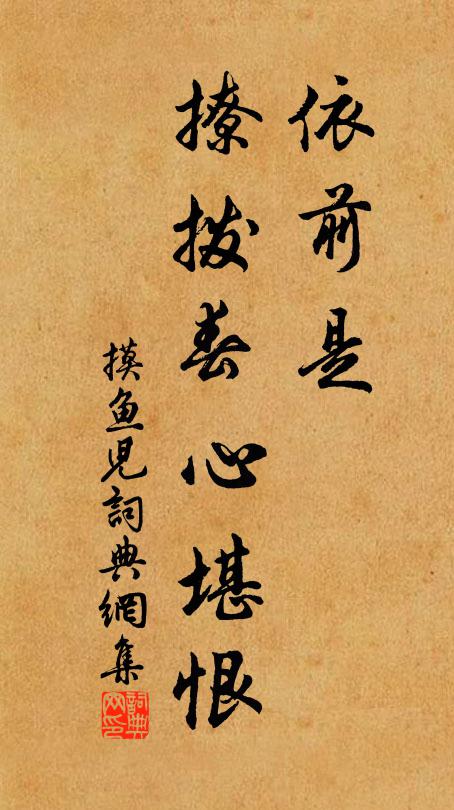 依前是
撩拨春心堪恨
摸鱼児詞典網集
詞典网印